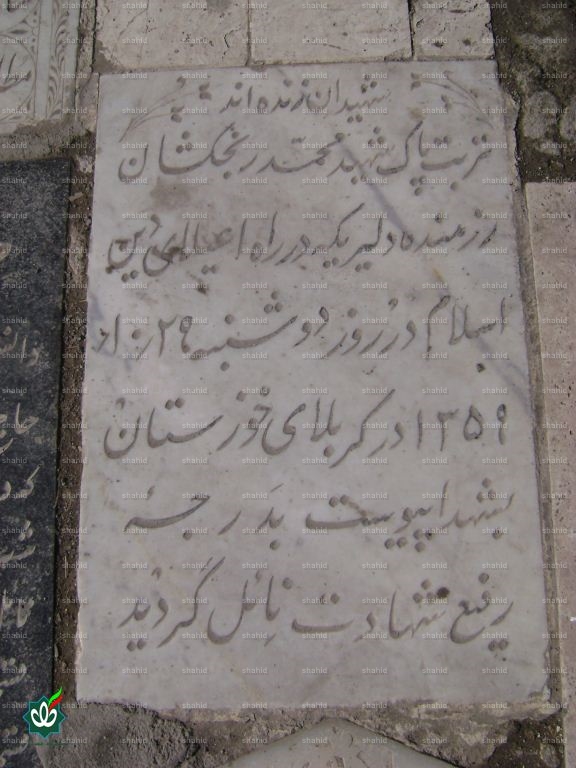 شهیدان زنده اند
تربت پاک شهید محمد رنجکشان
رزمنده دلیریکه در راه اعیالی دین
اسلام در روز دوشنبه ۲۹ر
۱۳۵۹ در کربلای خوزستان
بشهدا پیوست بدرجهٔ
رفیع شهادت نائل گردید
shahid